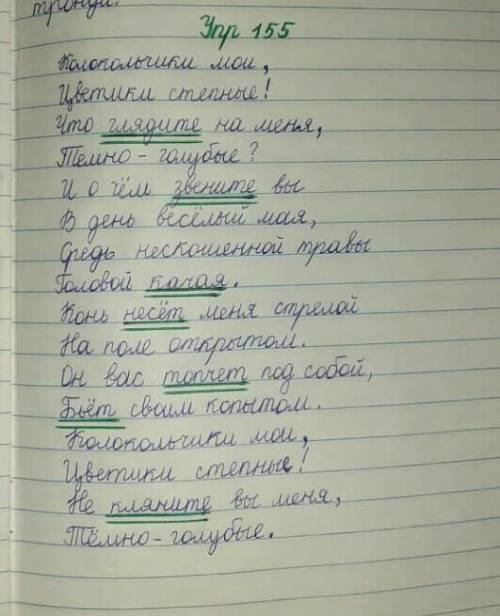 тронул.
Упр 155
Колокольчики мои,
Цветики степные!
Что глядите на меня,
Тёмно-голубые?
И о чём звените вы
В день весёлый мая,
Средь нескошенной травы
Головой качая.
Конь несёт меня стрелой
На поле открытом.
Он вас топчет под собой,
Бьёт своим копытом.
Колокольчики мои,
Цветики степные!
Не кляните вы меня,
Тёмно-голубые.